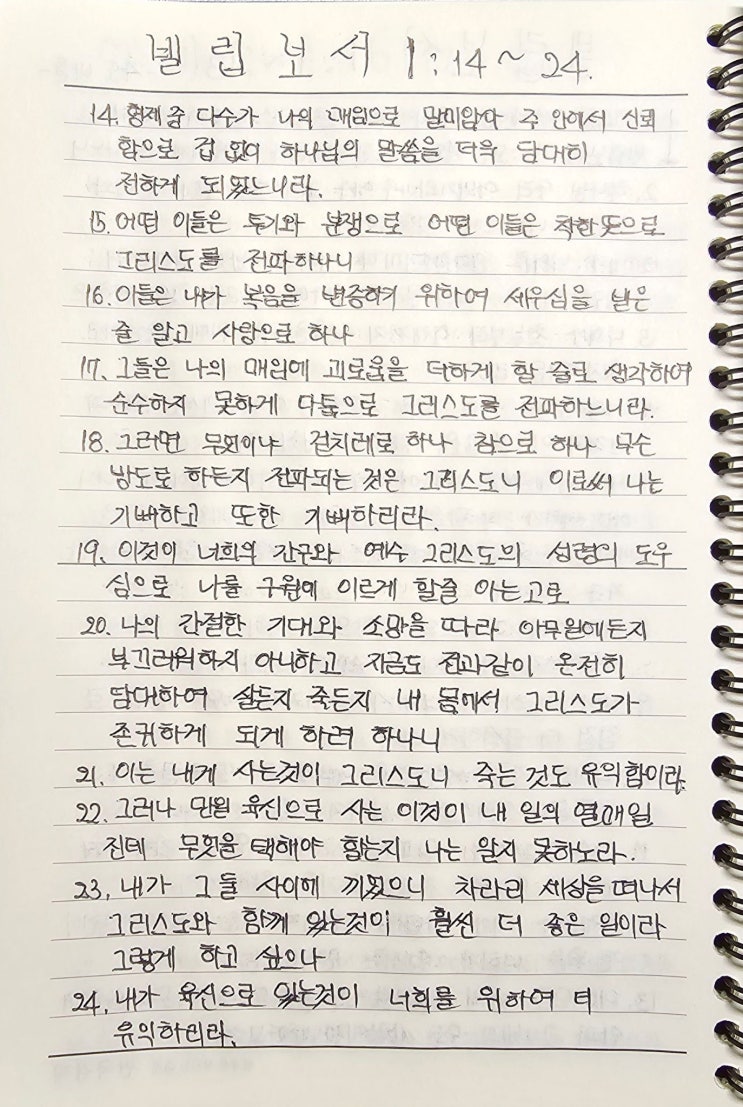 빌립보서 1:14~24.
14. 형제 중 다수가 나의 매임으로 말미암아 주 안에서 신뢰
함으로 겁 없이 하나님의 말씀을 더욱 담대히
전하게 되었느니라.
15. 어떤 이들은 투기와 분쟁으로 어떤 이들은 착한 뜻으로
그리스도를 전파하나니
16. 이들은 내가 복음을 변증하기 위하여 세우심을 받은
줄 알고 사랑으로 하나
17. 그들은 나의 매임에 괴로움을 더하게 할 줄로 생각하여
순수하지 못하게 다툼으로 그리스도를 전파하느니라.
18. 그러면 무엇이냐 겉치레로 하나 참으로 하나 무슨
방도로 하든지 전파되는 것은 그리스도니 이로써 나는
기뻐하고 또한 기뻐하리라.
19. 이것이 너희의 간구와 예수 그리스도의 성령의 도우
심으로 나를 구원에 이르게 할줄 아는고로
20. 나의 간절한 기대와 소망을 따라 아무일에든지
부끄러워하지 아니하고 지금도 전과같이 온전히
담대하여 살든지 죽든지 내 몸에서 그리스도가
존귀하게 되게 하려 하나니
21. 이는 내게 사는것이 그리스도니 죽는 것도 유익함이라
22. 그러나 만일 육신으로 사는 이것이 내 일의 열매일
진데 무엇을 택해야 할는지 나는 알지 못하노라.
23. 내가 그 둘 사이에 끼었으니 차라리 세상을 떠나서
그리스도와 함께 있는것이 훨씬 더 좋은 일이라
그렇게 하고 싶으나
24. 내가 육신으로 있는것이 너희를 위하여 더
유익하리라.